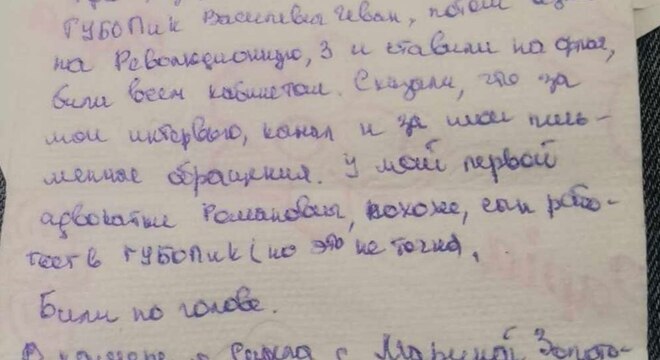 ГУБОПиК Василевич Иван, потом
на Революционную, 3 и ставили на
били всем кабинетом. Сказали, что за
мои интервью, канал и за мои пись-
менные обращения. У моей первой
адвокатки Романович, похоже, сын рабо-
тает в ГУБОПиК (но это не точно).
Били по голове.
сидела с Мариной Золото-